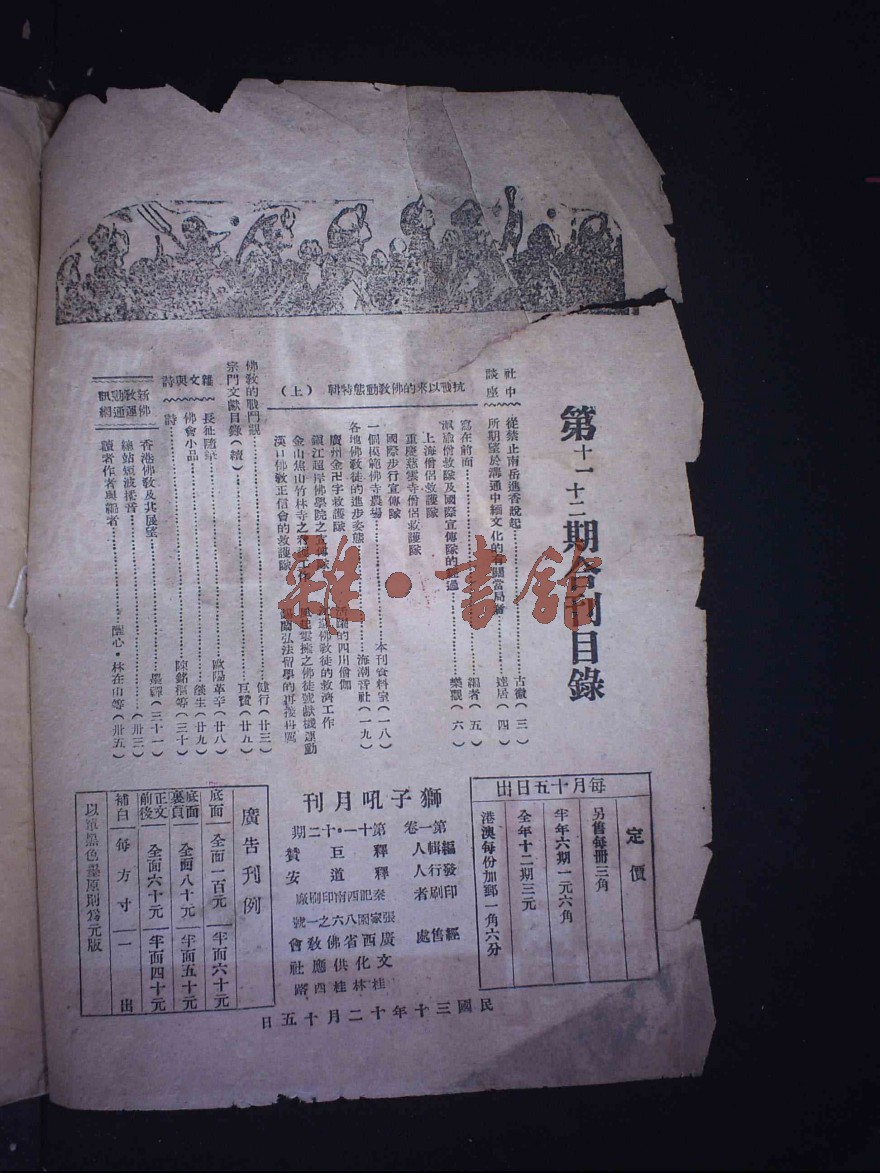 第十一十二期合刊目錄
社中談座
從禁止南岳進香說起………古徽（三）
所期望於溝通中緬文化的有關當局者………達居（四）
抗戰以來的佛教動態特輯（上）
寫在前面………編者（五）
僧救隊及國際宣傳隊的經過………樂觀（六）
上海僧侶救護隊
重慶慈雲寺僧侶救護隊
國際步行宣傳隊
一個模範佛寺農場………本刊資料室（一八）
各地佛教徒的進步姿態………海潮音社（一九）
廣州金卍字救護隊
活躍的四川僧伽
鎮江超岸佛學院之宣傳隊
佛教徒的救濟工作
金山焦山竹林寺之救護工作
之佛徒號獻機運動
漢口佛教正信會的救護隊
弘法留學的再接再厲
佛教的戰鬥觀………健行（廿三）
宗門文獻目錄（續）………巨贊（廿五）
雜文與詩
長征隨筆………歐陽革辛（廿八）
佛會小品………餘生（廿九）
詩………陳銘樞等（三十）
新佛教運動通訊網
香港佛教及其展望………墨禪（三十一）
綠站短波採音………（卅三）
讀者作者與編者………醒心・林在山等（卅五）
每月十五日出
定價
另售每冊三角
半年六期一元六角
全年十二期三元
港澳每份加郵一角六分
獅子吼月刊
第一卷第十一・十二期
編輯人 釋巨贊
發行人 釋道安
印刷者 秦記西南印刷廠
張家園八六之一號
經售處 廣西省佛教會
文化供應社
桂林桂西路
民國三十年十二月十五日
廣告刊例
底面 全面一百元 半面六十元
底面裏頁 全面八十元 半面五十元
正文前後 全面六十元 半面四十元
補白 每方寸一元
以單黑色墨原則為元版
雜・書館